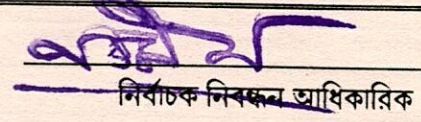 নির্বাচক নিবন্ধন আধিকারিক